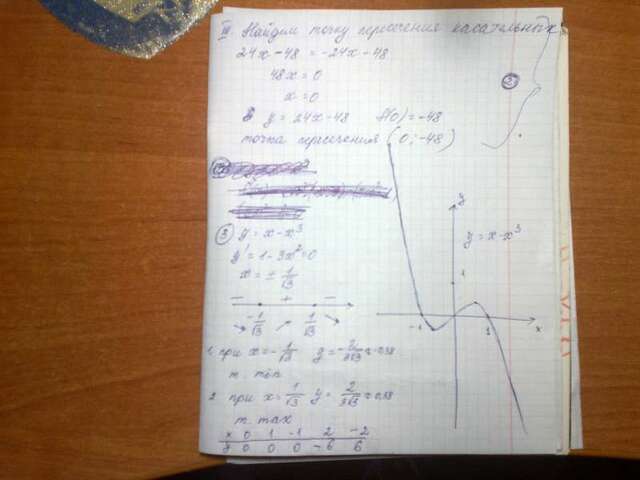 III. Найдем точку пересечения касательных
24x - 48 = -24x - 48
48x = 0
x = 0
y = 24x - 48 f(0) = -48
точка пересечения (0; -48)
2
3 y = x - x³
y' = 1 - 3x² = 0
x = ± 1/√3
- + -
-1/√3 1/√3
1. при x = -1/√3 y = -2/3√3 ≈ -0,38
т. min
2 при x = 1/√3 y = 2/3√3 ≈ 0,38
т. max
x 0 1 -1 2 -2
y 0 0 0 -6 6
y
y = x - x³
1
-1 1 x